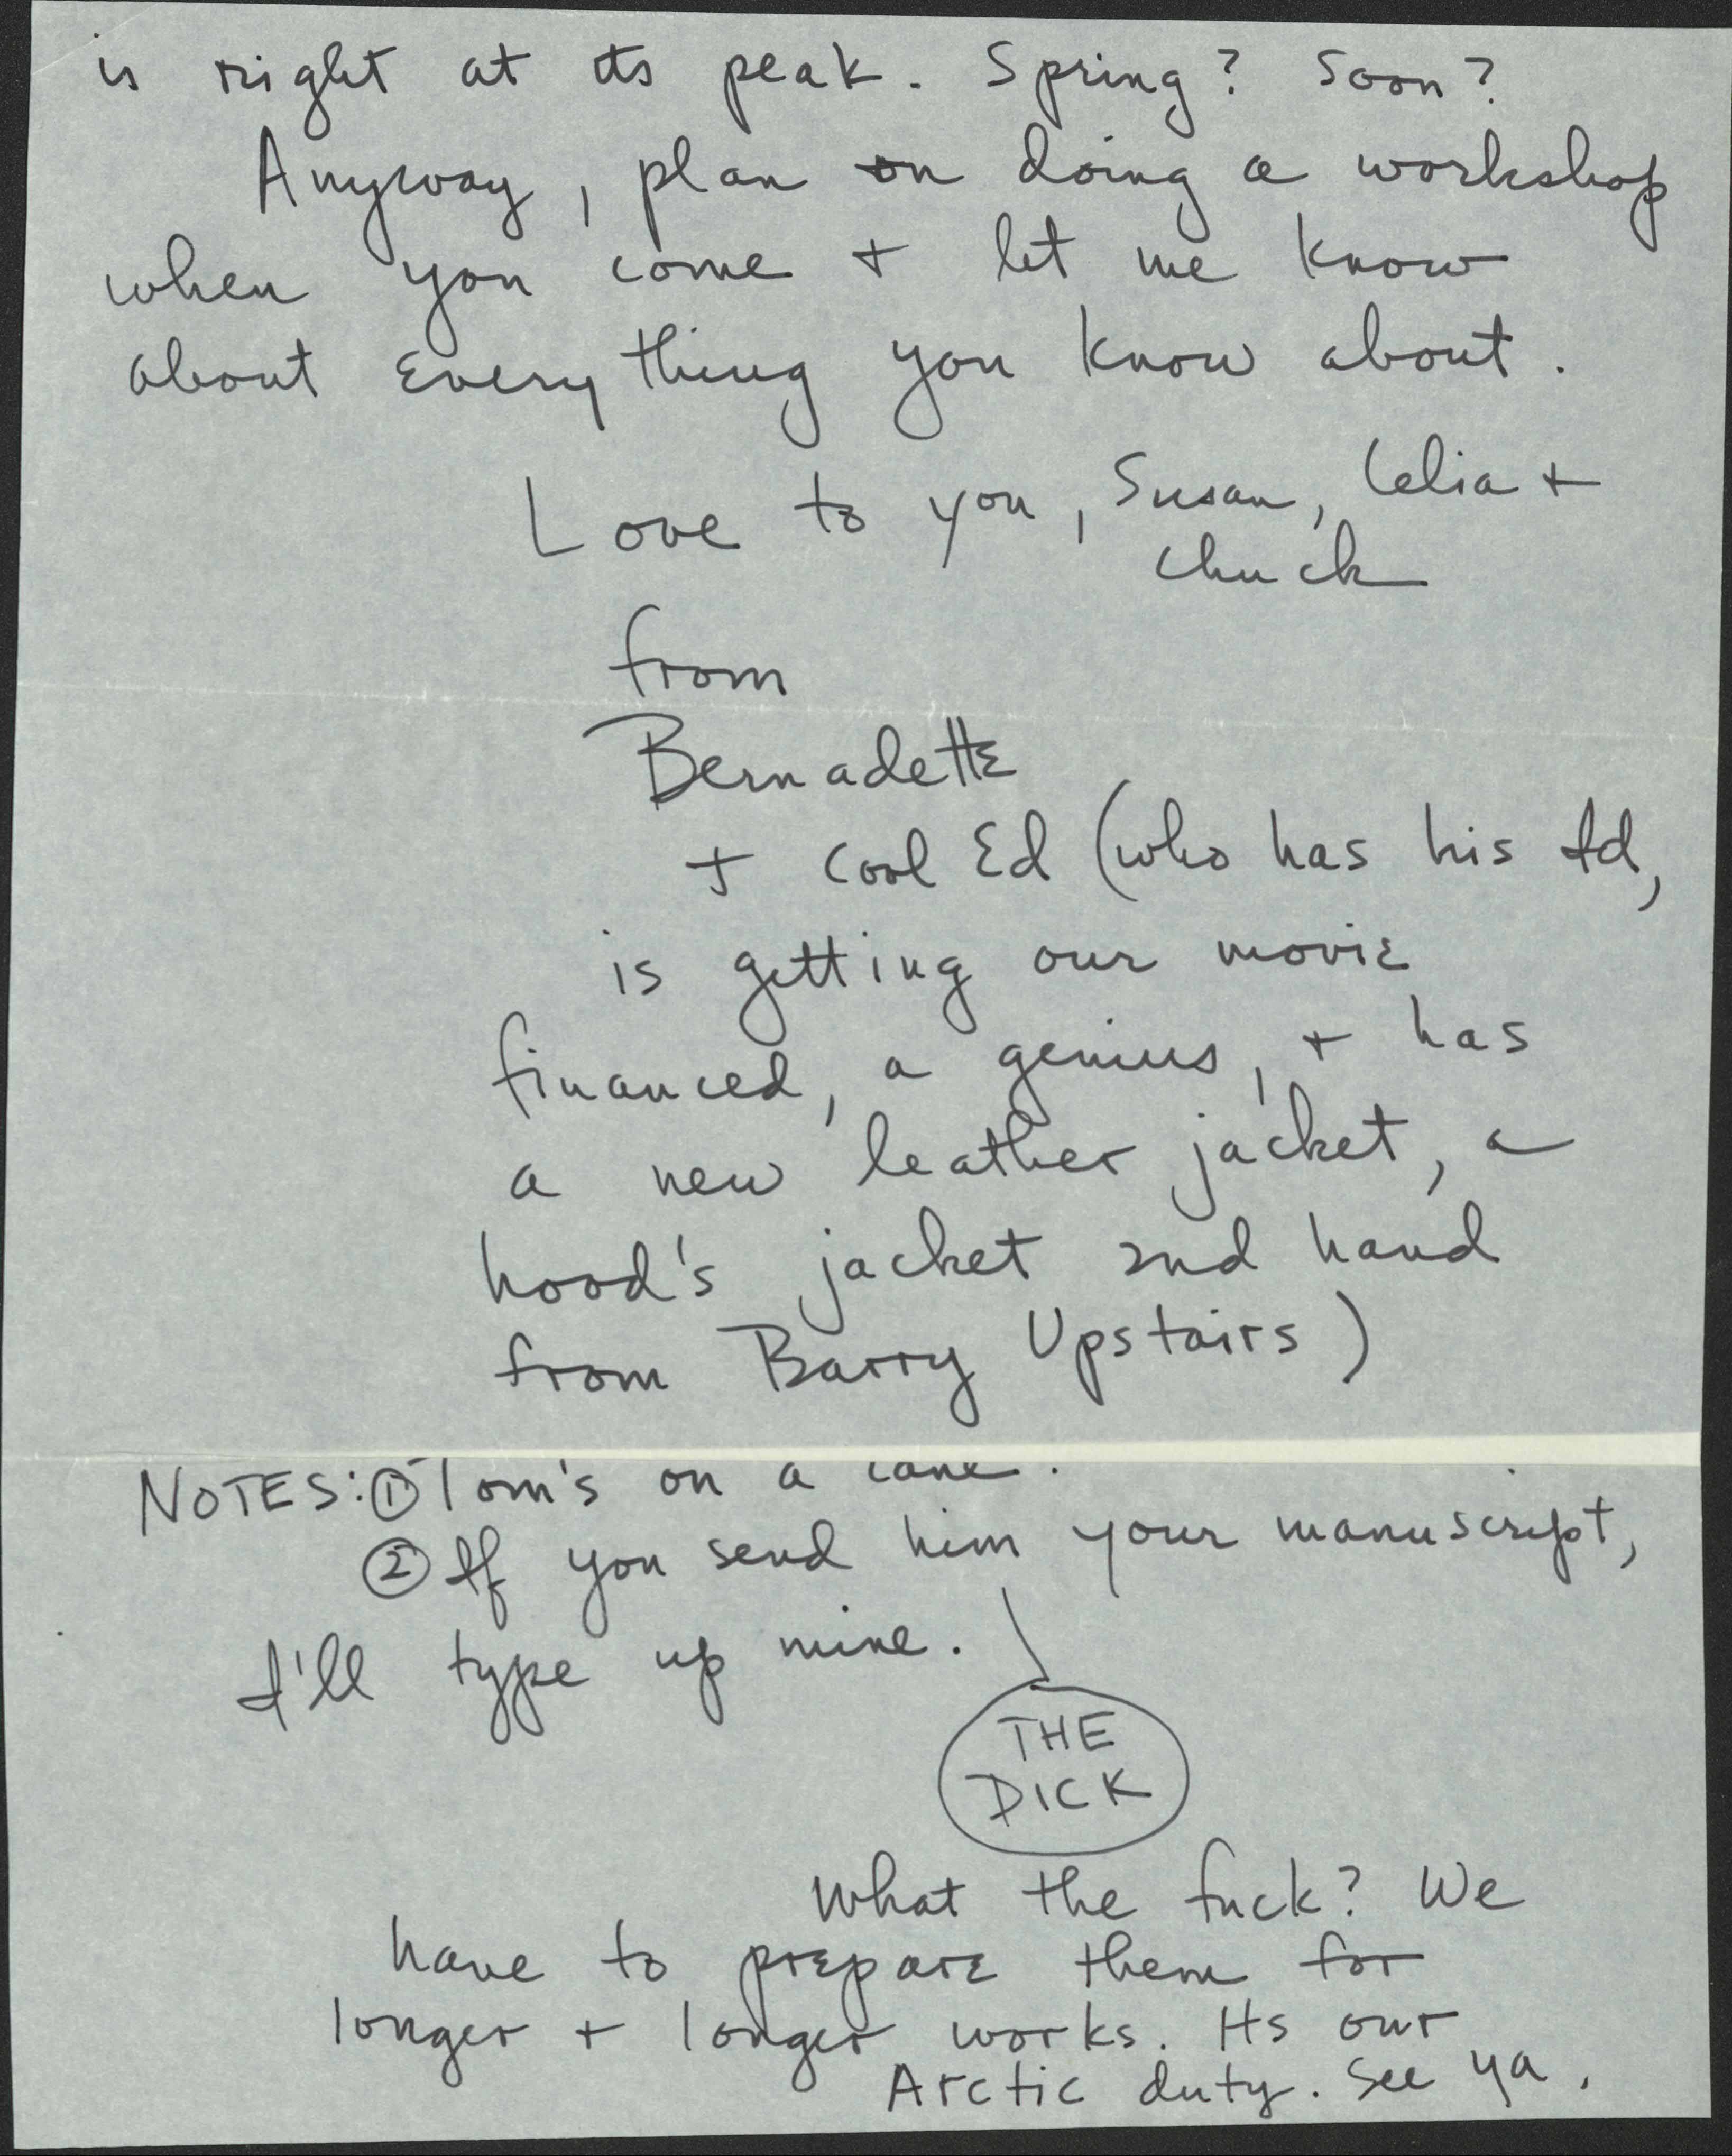 is right at its peak. Spring? Soon?
Anyway, plan on doing a workshop
when you come + let me know
about everything you know about.
Love to you, Susan, Celia +
Chuck
from
Bernadette
+ Cool Ed (who has his Id,
is getting our movie
financed, a genius, + has
a new leather jacket, a
hood's jacket 2nd hand
from Barry Upstairs)
NOTES: ① Tom's on a cane.
② If you send him your manuscript,
I'll type up mine.
THE
DICK
What the fuck? We
have to prepare them for
longer + longer works. Its our
Arctic duty. See ya.